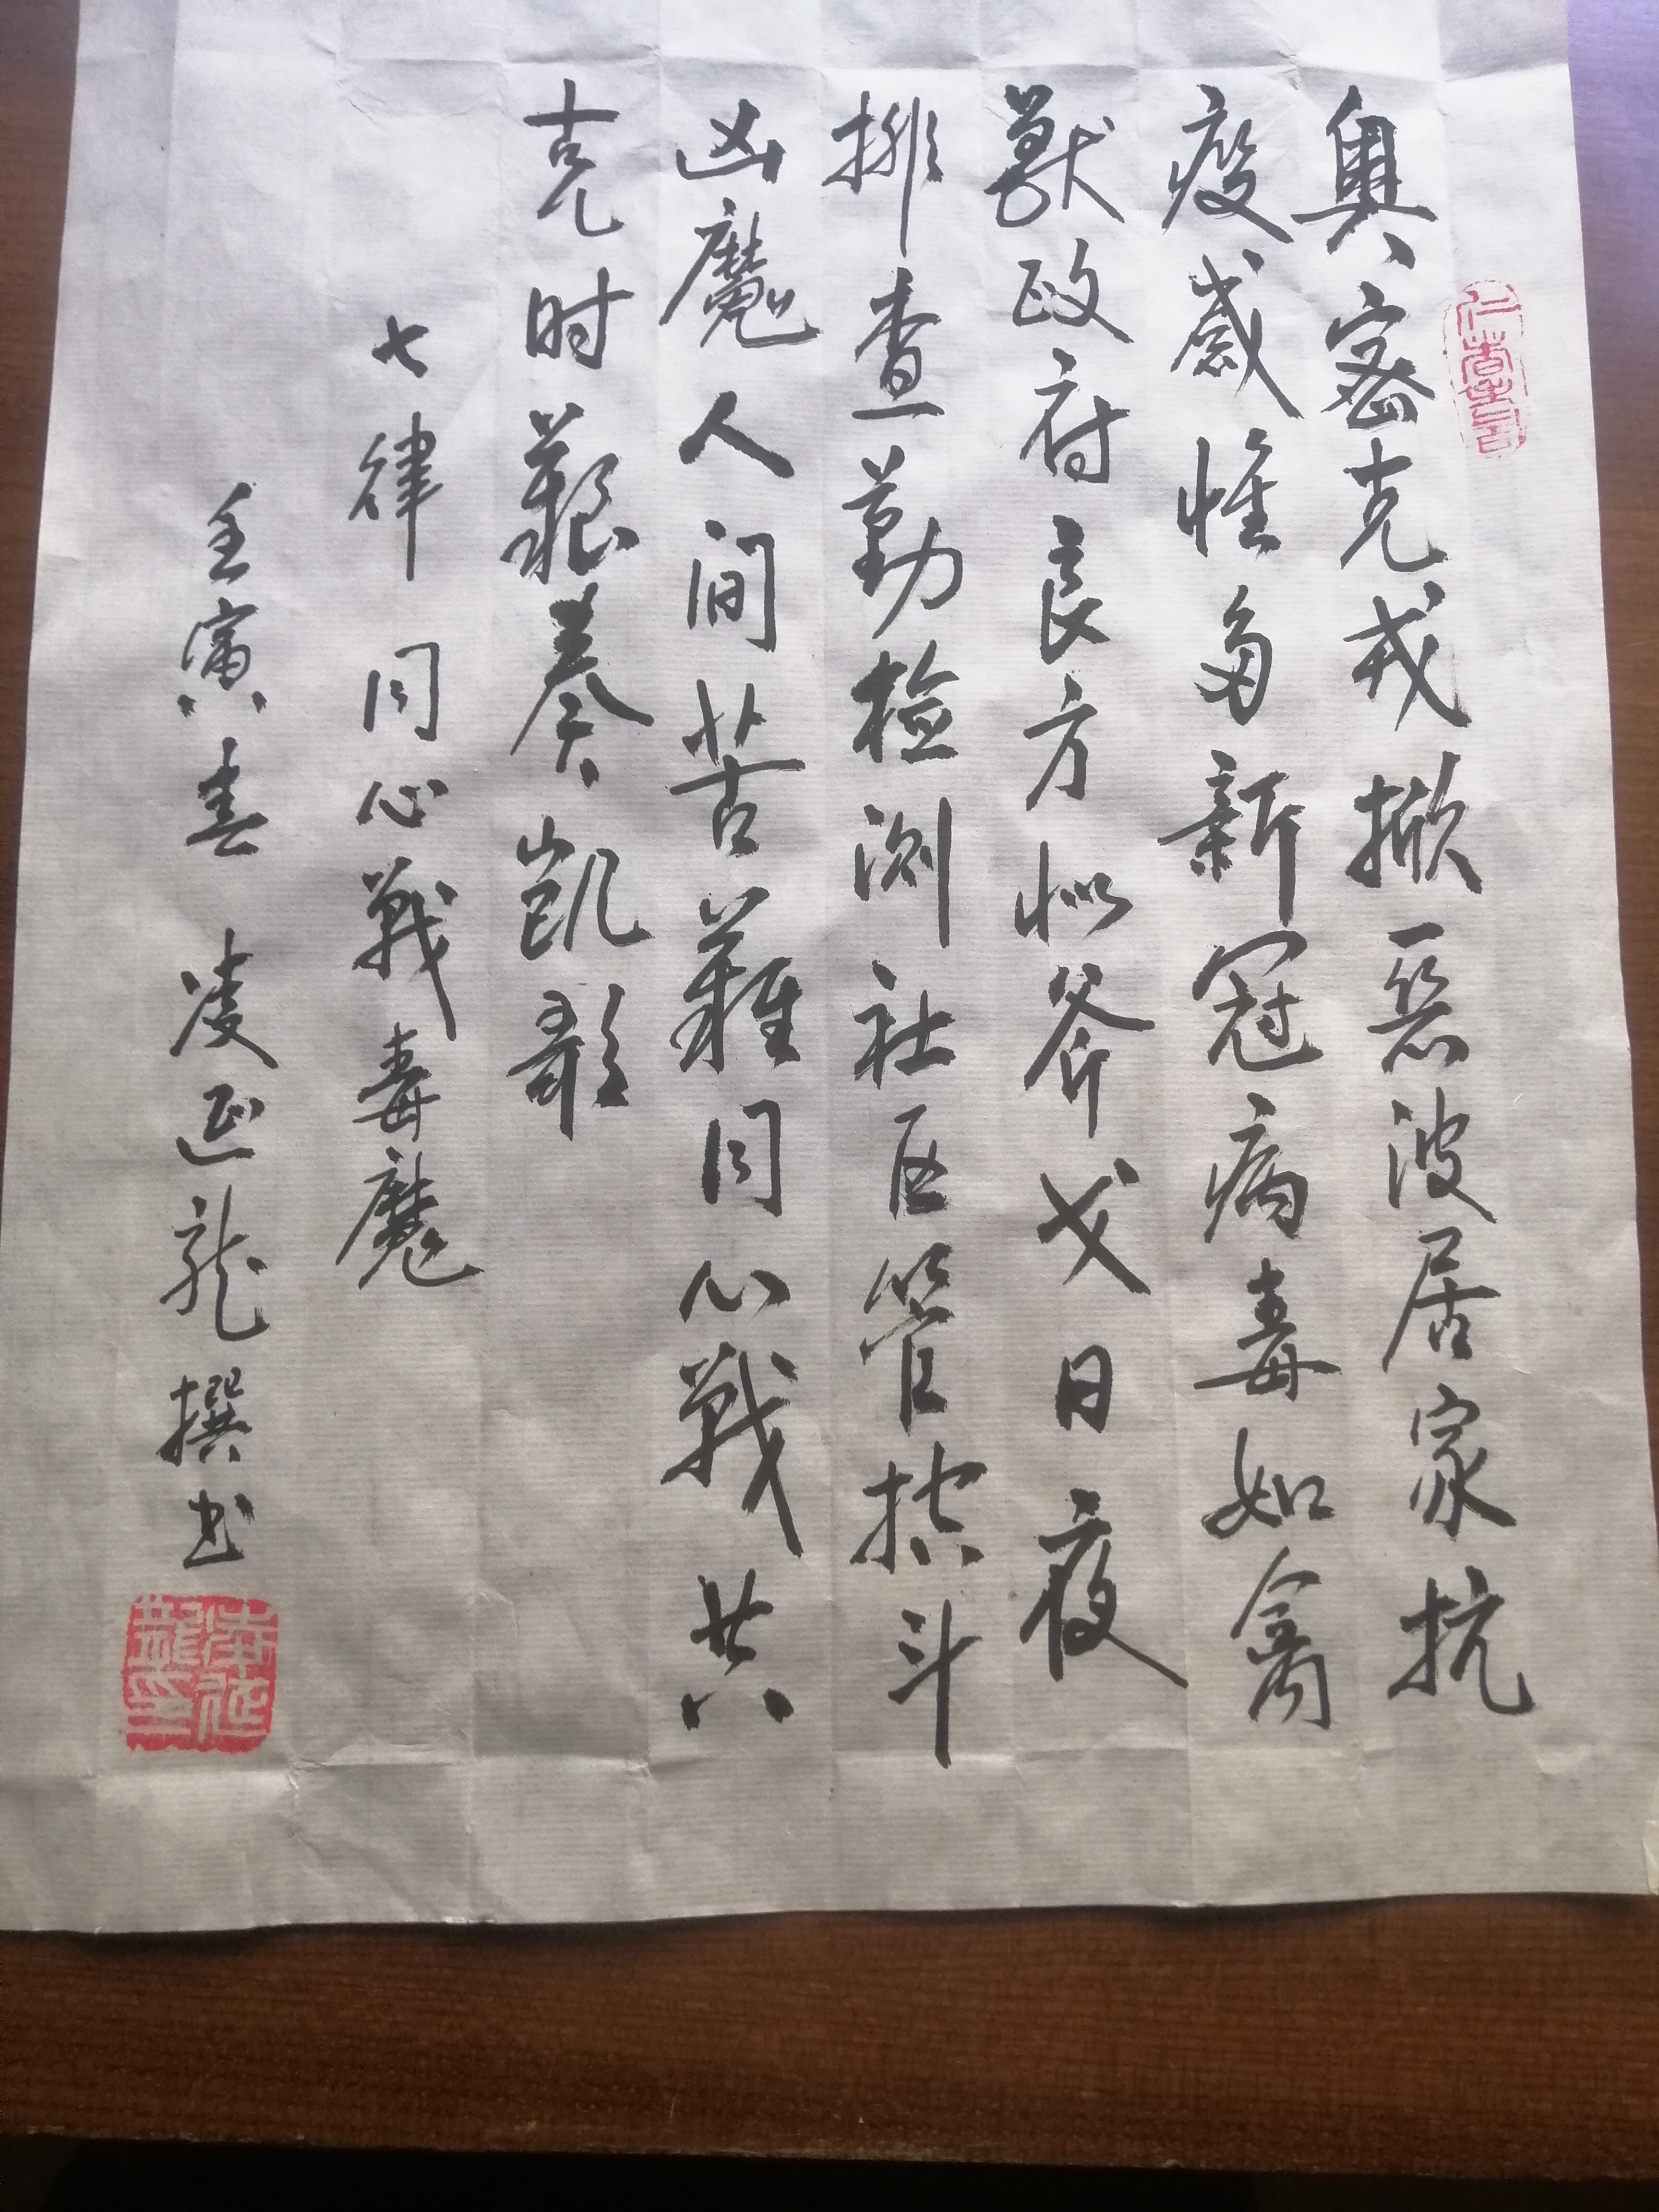 奥密克戎掀恶波居家抗
疫感慨多新冠病毒如禽
兽政府良方似斧戈日夜
排查勤检测社区管控斗
凶魔人间苦难同心战共
克时艰奏凯歌
七律 同心战毒魔
壬寅春 凌延龙撰书